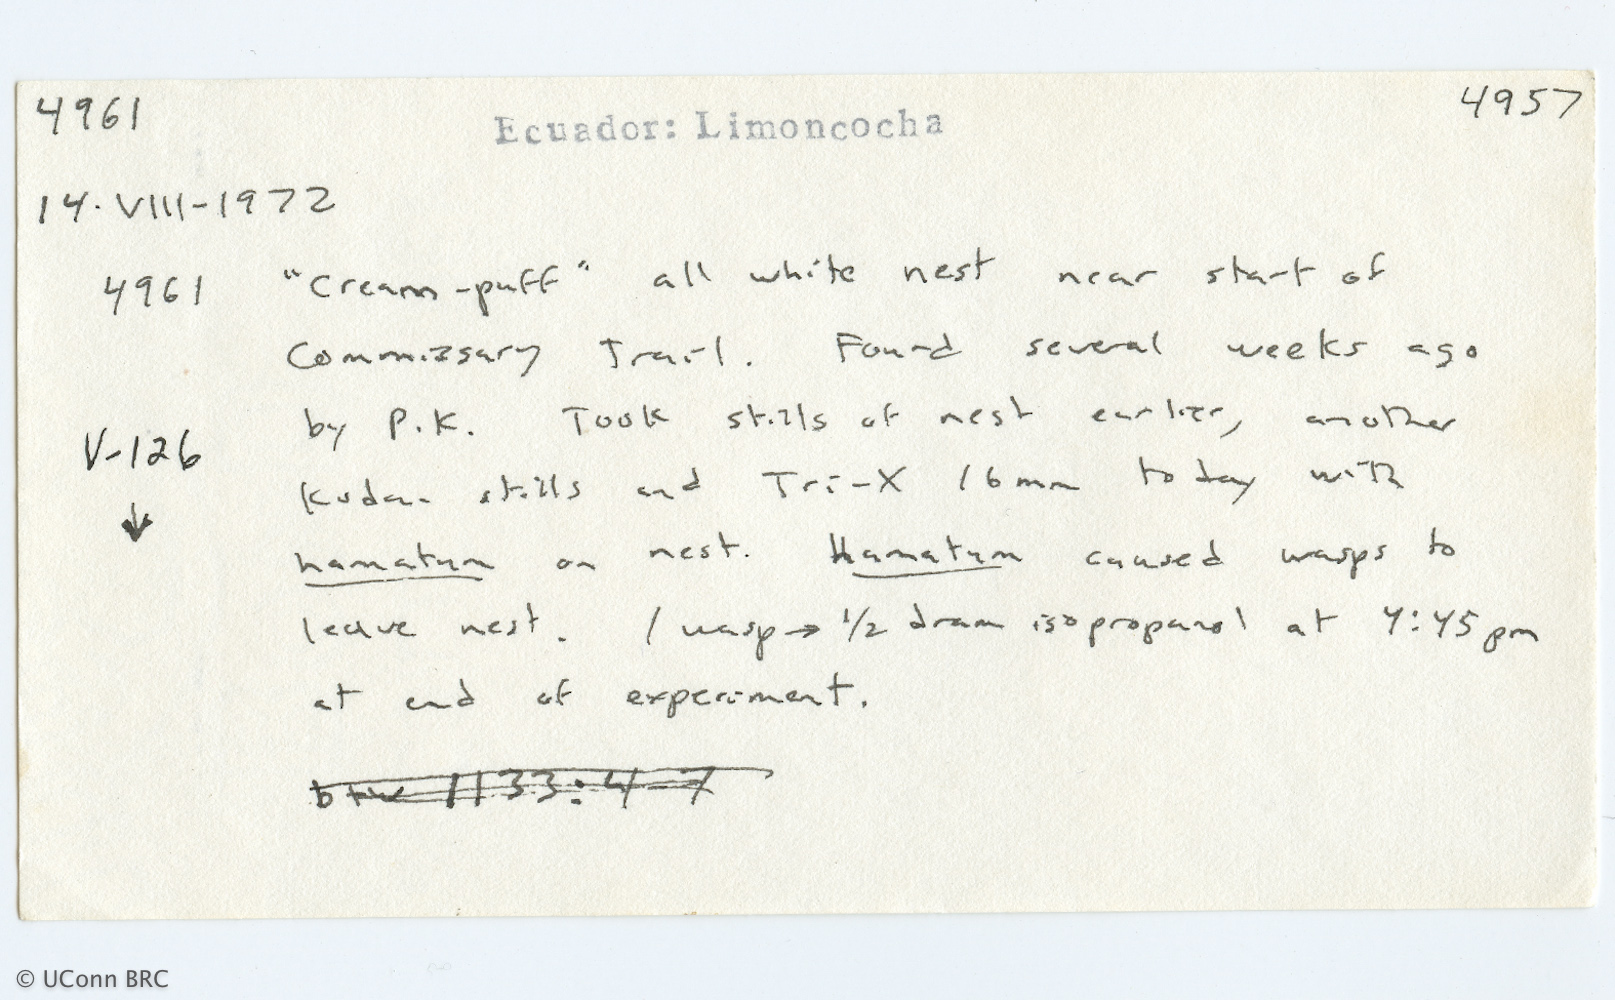 4961 Ecuador: Limoncocha 4957
14-VIII-1972
4961 "Cream-puff" all white nest near start of
Commissary Trail. Found several weeks ago
by P.K. Took stills of nest earlier, another
V-126
↓
stills and Tri-X 16mm today with
hamatum on nest. Hamatum caused wasps to
leave nest. 1 wasp → 1/2 dram isopropanol at 4:45 pm
at end of experiment.
b+w 1133:4-7
© UConn BRC